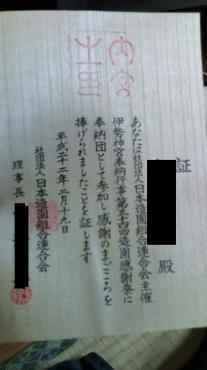 証
殿
あなたは社団法人日本造園組合連合会主催
伊勢神宮奉納行事第三十四回造園感謝祭に
奉納団として参加し感謝のまごころを
捧げられましたことを証します
平成二十二年二月十九日
社団法人日本造園組合連合会
理事長